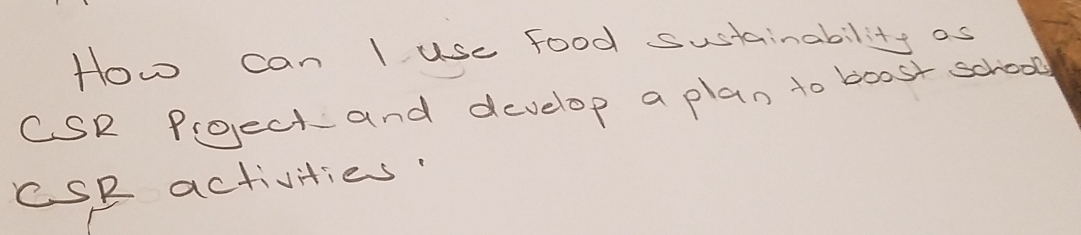 How can I use Food sustainability as
CSR Project and develop a plan to boost school
CSR activities.